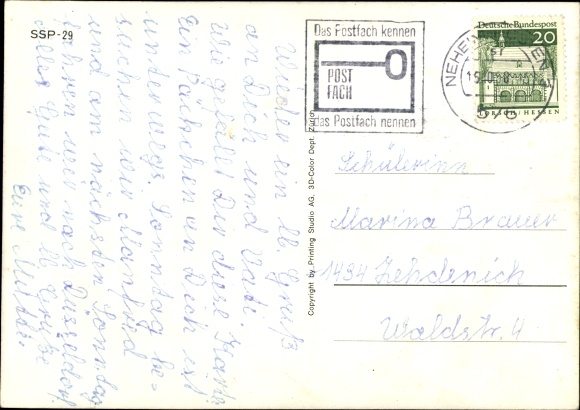 SSP-29
Wieder ein lb. Gruß
an Dich und Vati.
Wie gefällt Dir diese Karte
Ein Päckchen an Dich ist
unterwegs. Sonntag be=
suchen wir Manfred
und am nächsten Sonntag
fahren wir nach Düsseldorf
Alles Gute und lb. Grüße
Eure Mutti.
Copyright by Printing Studio AG, 3D-Color Dept. Zürich
Das Postfach kennen
POST
FACH
das Postfach nennen
NEHEIM
Deutsche Bundespost
20
LORSCH/HESSEN
Schülerin
Marina Brauer
1434 Zehdenick
Waldstr. 4